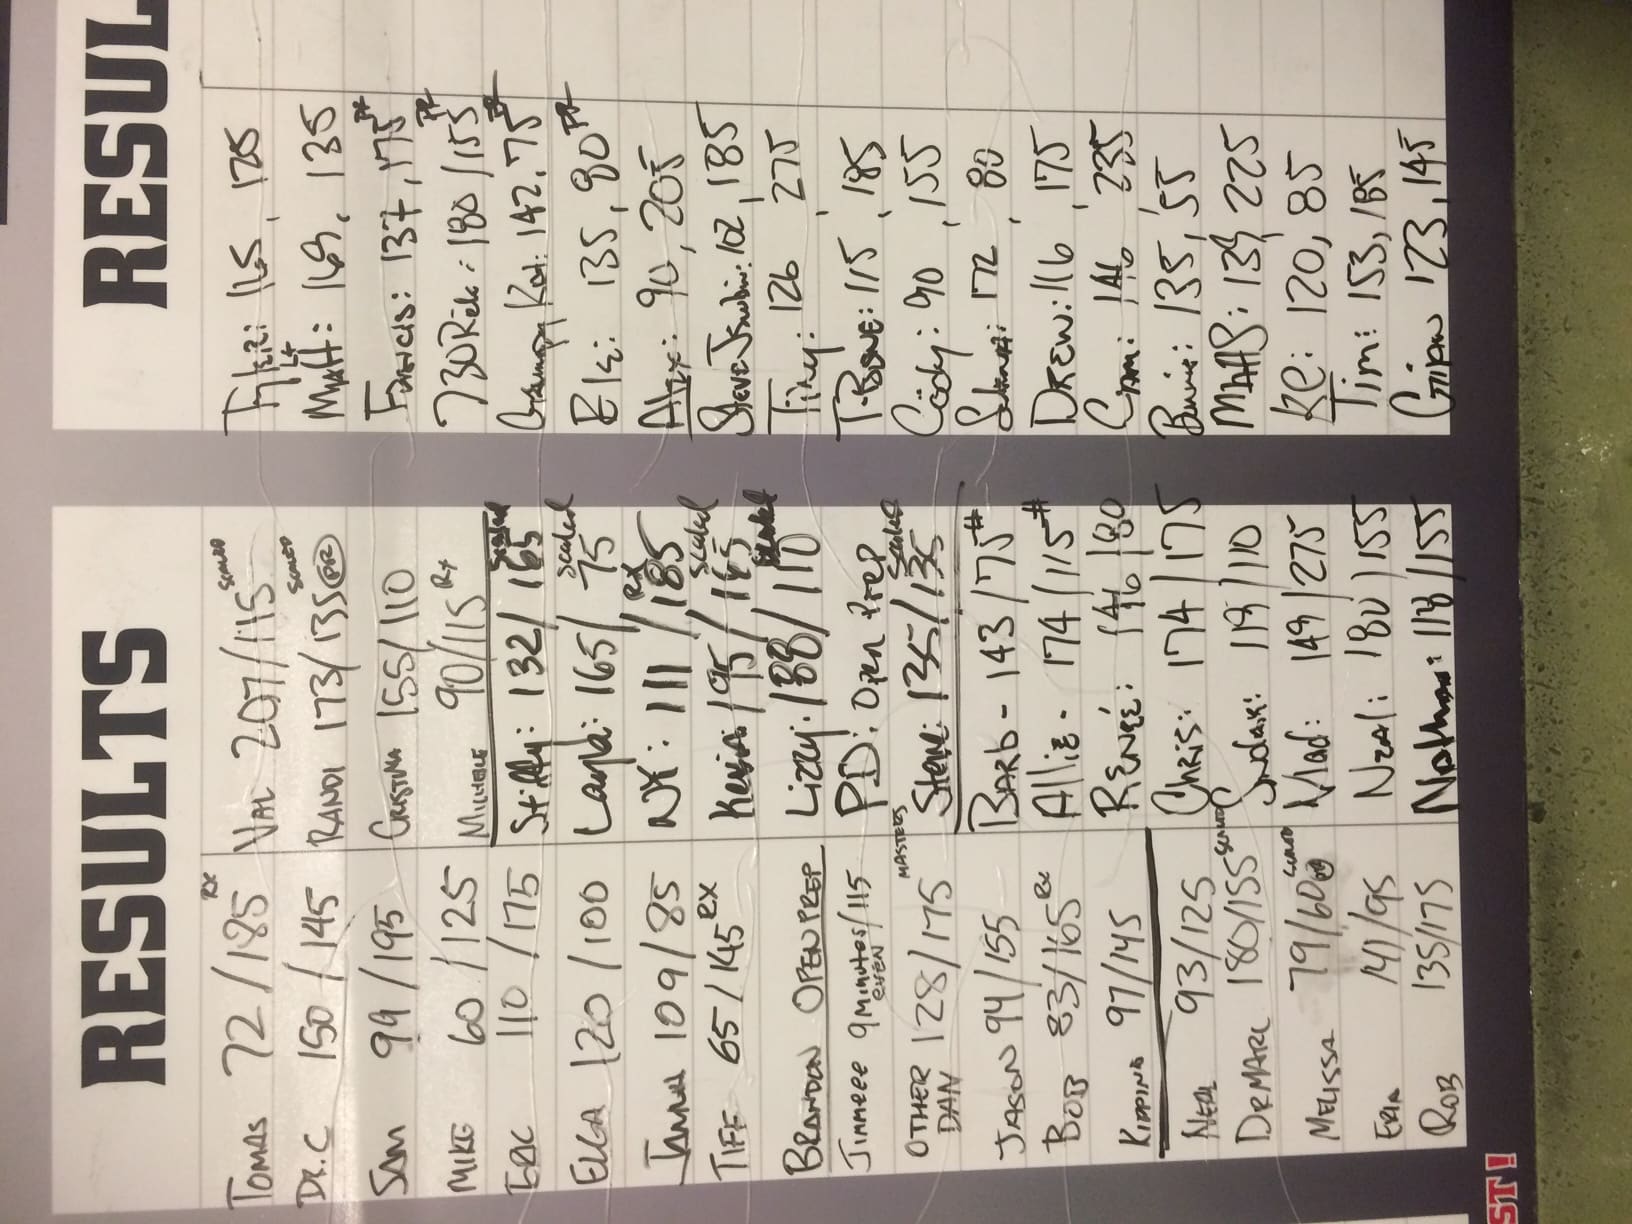 RESULTS
TOMAS 72/185 RX
DR. C 150/145
SAM 99/195
MIKE 60/125
ERIC 110/175
ELGA 120/100
109/85
TIFF 65/145 RX
BRANDON OPEN PREP
Jimmeee 9 minutes/115
EVEN
OTHER DAN 128/175 MASTERS
JASON 94/155
BOB 83/165 Rx
KIPPING 97/145
NEAL 93/125
DR MARC 180/155 SCALED
MELISSA 79/60 PR SCALED
ERIN 141/95
ROB 135/175
VAL 207/115 SCALED
RANDI 173/135 PR SCALED
CRISTINA 155/110
MICHELLE 90/115 Rx
132/165 Scaled
Layla: 165/75 scaled
111/185 RX
195/165 scaled
Lizzy: 188/110 scaled
PD: Open Prep
Steve: 135/135 scaled
BARB - 143/75#
Allie - 174/115#
RENEÉ: 146/180
CHRIS: 174/175
119/110
Mad: 149/275
Nzal: 180/155
Nathan: 118/155
RESUL
165, 125
Matt: 169, 135
FRANCIS: 137, 175 PR
730 Rick: 180/155 PR
Grumpy Kat: 142, 75 PR
135, 90 PR
Alex: 90, 205
102, 185
Tiny: 126, 275
T-BONE: 115, 185
Cody: 90, 155
172, 80
DREW: 116, 175
Cam: 146, 235
135, 55
MAAS: 139, 225
120, 85
Tim: 153, 185
123, 145
ST!